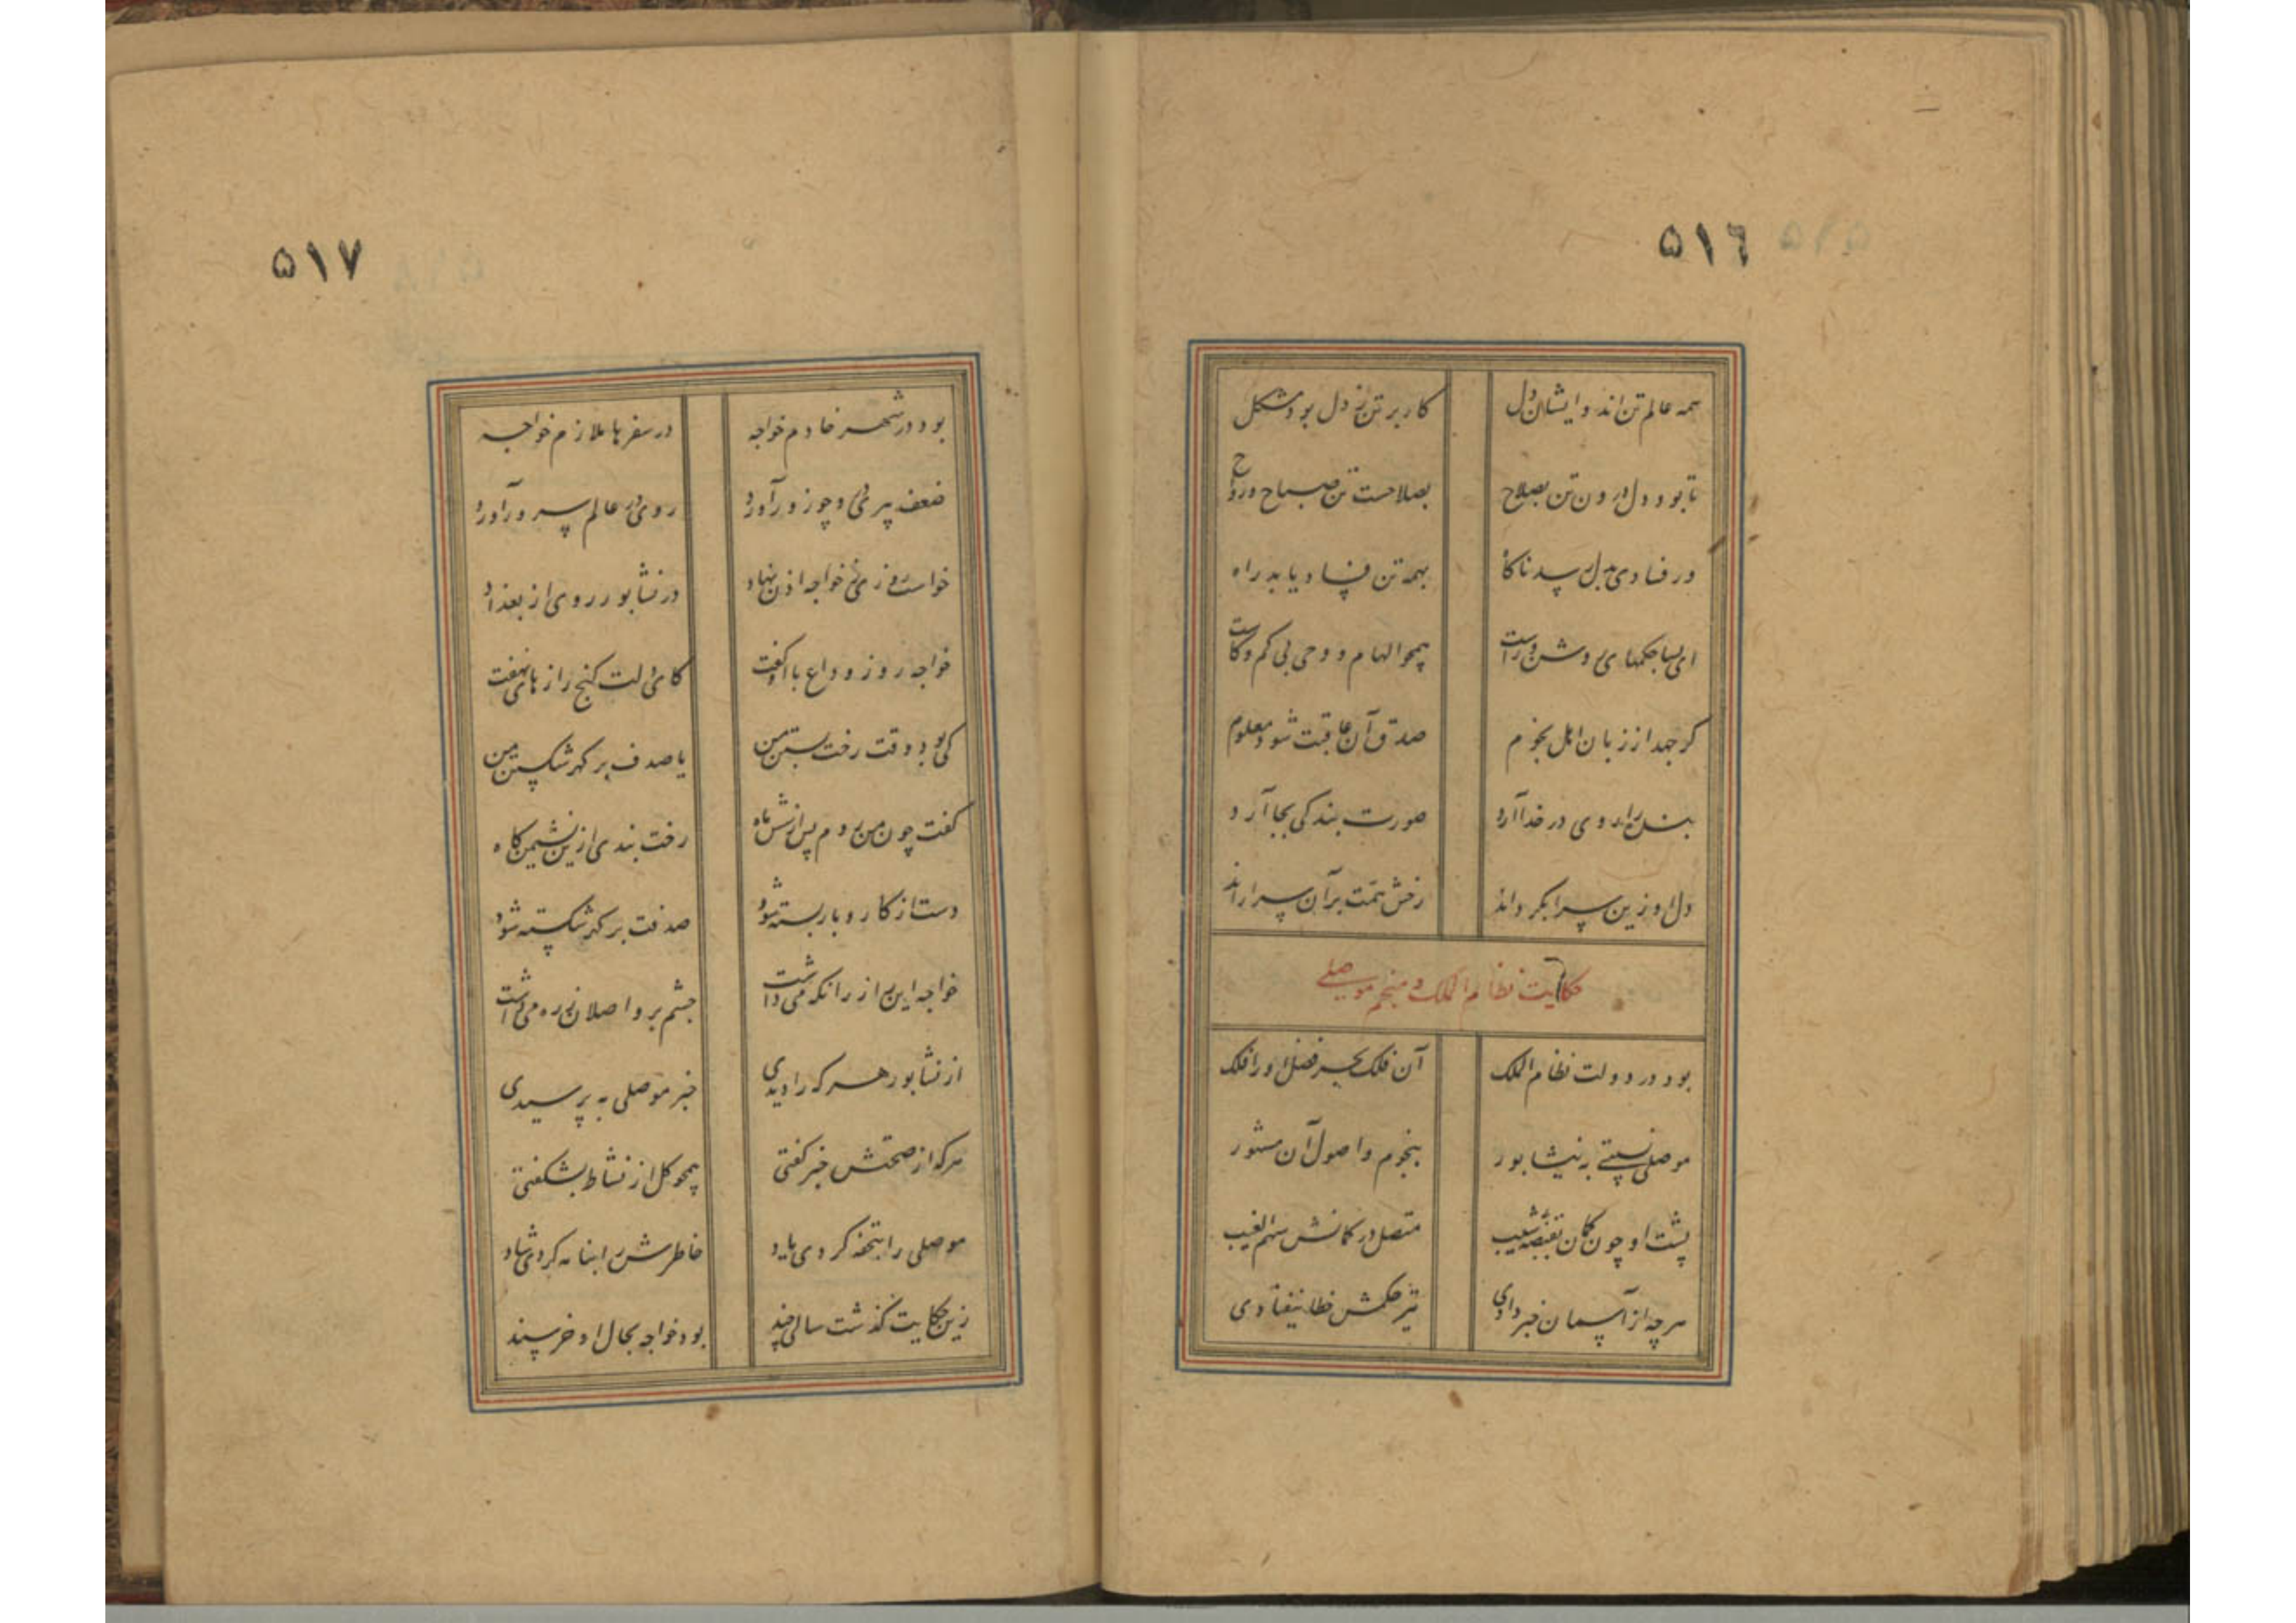 ٥١٦
همه عالم تن اند و ایشان دل کار بر تن ز دل بود مشکل
تا بود دل درون تن بصلاح بصلاحست تن صباح و رواح
ور فسادی بدل رسد ناگاه بهمه تن فساد یابد راه
ای بسا حکمهای روشن و راست همچو الهام و وحی بی کم و کاست
که جهد از زبان اهل نجوم صدق آن عاقبت شود معلوم
بنده را روی در خدا آرد صورت بندگی بجا آرد
دل او زین سرا بگرداند رخش همت برآن سرا راند
حکایت نظام الملک و منجم موصلی
بود در دولت نظام الملک آن فلک بحر فضل او را فلک
موصلی نسبتی به نیشابور بنجوم و اصول آن مشهور
پشت او چون کمان بقبضه شیب متصل در کمانش سهم الغیب
هرچه از آسمان خبر دادی تیر حکمش خطا نیفتادی
٥١٧
بود در شهر خادم خواجه در سفرها ملازم خواجه
ضعف پیری برو چو زور آورد روی در عالم سرور آورد
خواست روزی ز خواجه اذن نهاد در نشابور روی از بغداد
خواجه روز وداع با او گفت کای دلت گنج رازهای نهفت
کی بود وقت رخت بستن من یا صدف بر گهر شکستن من
گفت چون من روم پس از شش ماه رخت بندی ازین نشیمن گاه
دستت از کار و بار بسته شود صدفت بر گهر شکسته شود
خواجه این راز را نگه می داشت چشم بر واصلان ره می داشت
از نشابور هر که را دیدی خبر موصلی به پرسیدی
هر که از صحتش خبر گفتی همچو گل از نشاط بشکفتی
موصلی را بتحفه کردی یاد خاطرش را بنامه کردی شاد
زین حکایت گذشت سالی چند بود خواجه بحال او خرسند